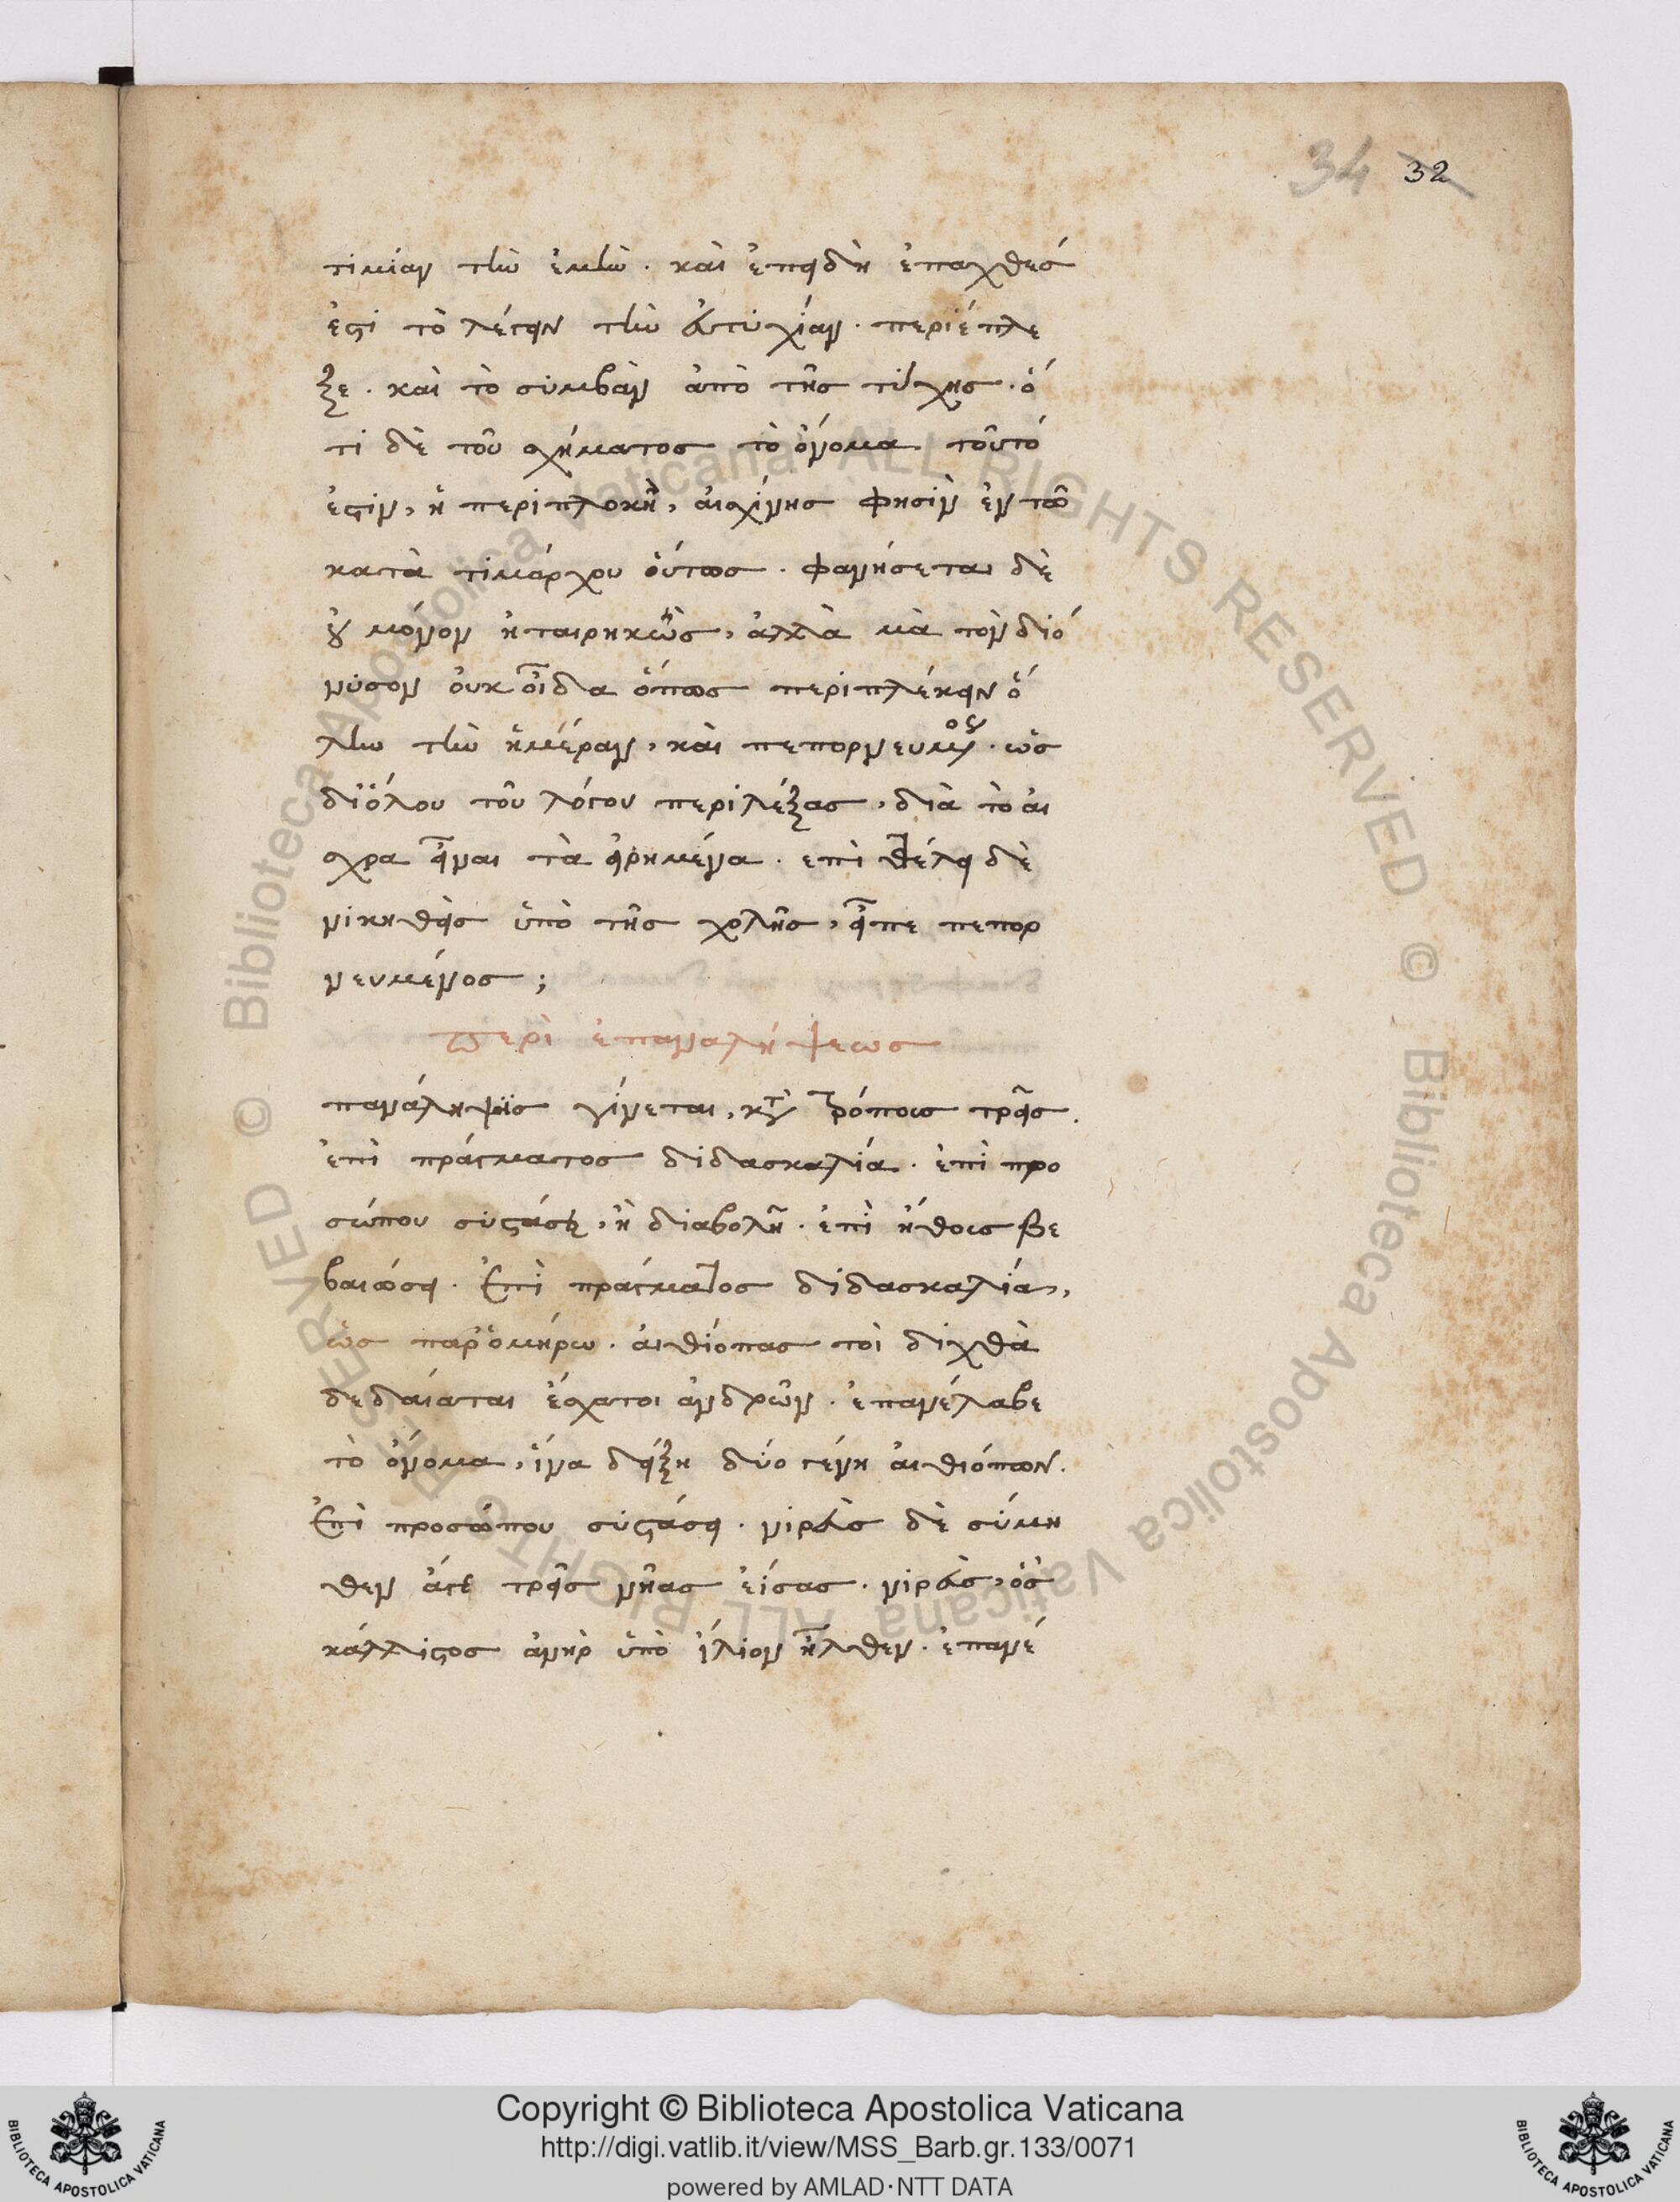 34 32
τιμίαν τὴν ἐμὴν. καὶ ἐπειδὴ ἐπαχθές
ἐστὶ τὸ λέγειν τὴν εὐτυχίαν. περιέπλε
ξε. καὶ τὸ συμβὰν ἀπὸ τῆς τύχης. ὅ
τι δὲ τοῦ σχήματος τὸ ὄνομα τοῦτό
ἐστιν, ἡ περιπλοκὴ, αἰσχίνης φησὶν ἐν τῶ
κατὰ τιμάρχου οὕτως. φανήσεται δὲ
οὐ μόνον ἡταιρηκὼς, ἀλλὰ μὰ τὸν διό
νυσον οὐκ οἶδα ὅπως περιπλέκειν ὅ
λην τὴν ἡμέραν, καὶ πεπορνευμένος. ὡς
διὅλου τοῦ λόγου περιπλέξας, διὰ τὸ αἰ
σχρα εἶναι τὰ εἰρημένα. επὶ τέλει δὲ
νικηθεὶς ὑπὸ τῆς χολῆς, εἶπε πεπορ
νευμένος;
περὶ ἐπαναλήψεως
παναάληψις γίνεται, κατὰ τρόπους τρεῖς.
ἐπὶ πράγματος διδασκαλία. ἐπὶ προ
σώπου συστάσει, ἢ διαβολῆ. ἐπὶ ἤθους βε
βαιώσει. Ἐπὶ πράγματος διδασκαλία,
ὡς παρ' ὁμήρω. αἰθίοπας τοὶ διχθὰ
δεδαίαται ἔσχατοι ἀνδρῶν. ἐπανέλαβε
τὸ ὄνομα, ἵνα δείξη δύο γένη αἰθιόπων.
Ἐπὶ προσώπου συστάσει. νιρεὺς δὲ σύμη
θεν ἄγε τρεῖς νῆας ἐίσας. νιρεὺς, ὃς
κάλλιστος ἀνὴρ ὑπὸ ἴλιον ἦλθεν. ἐπανέ
Copyright © Biblioteca Apostolica Vaticana
http://digi.vatlib.it/view/MSS_Barb.gr.133/0071
powered by AMLAD·NTT DATA